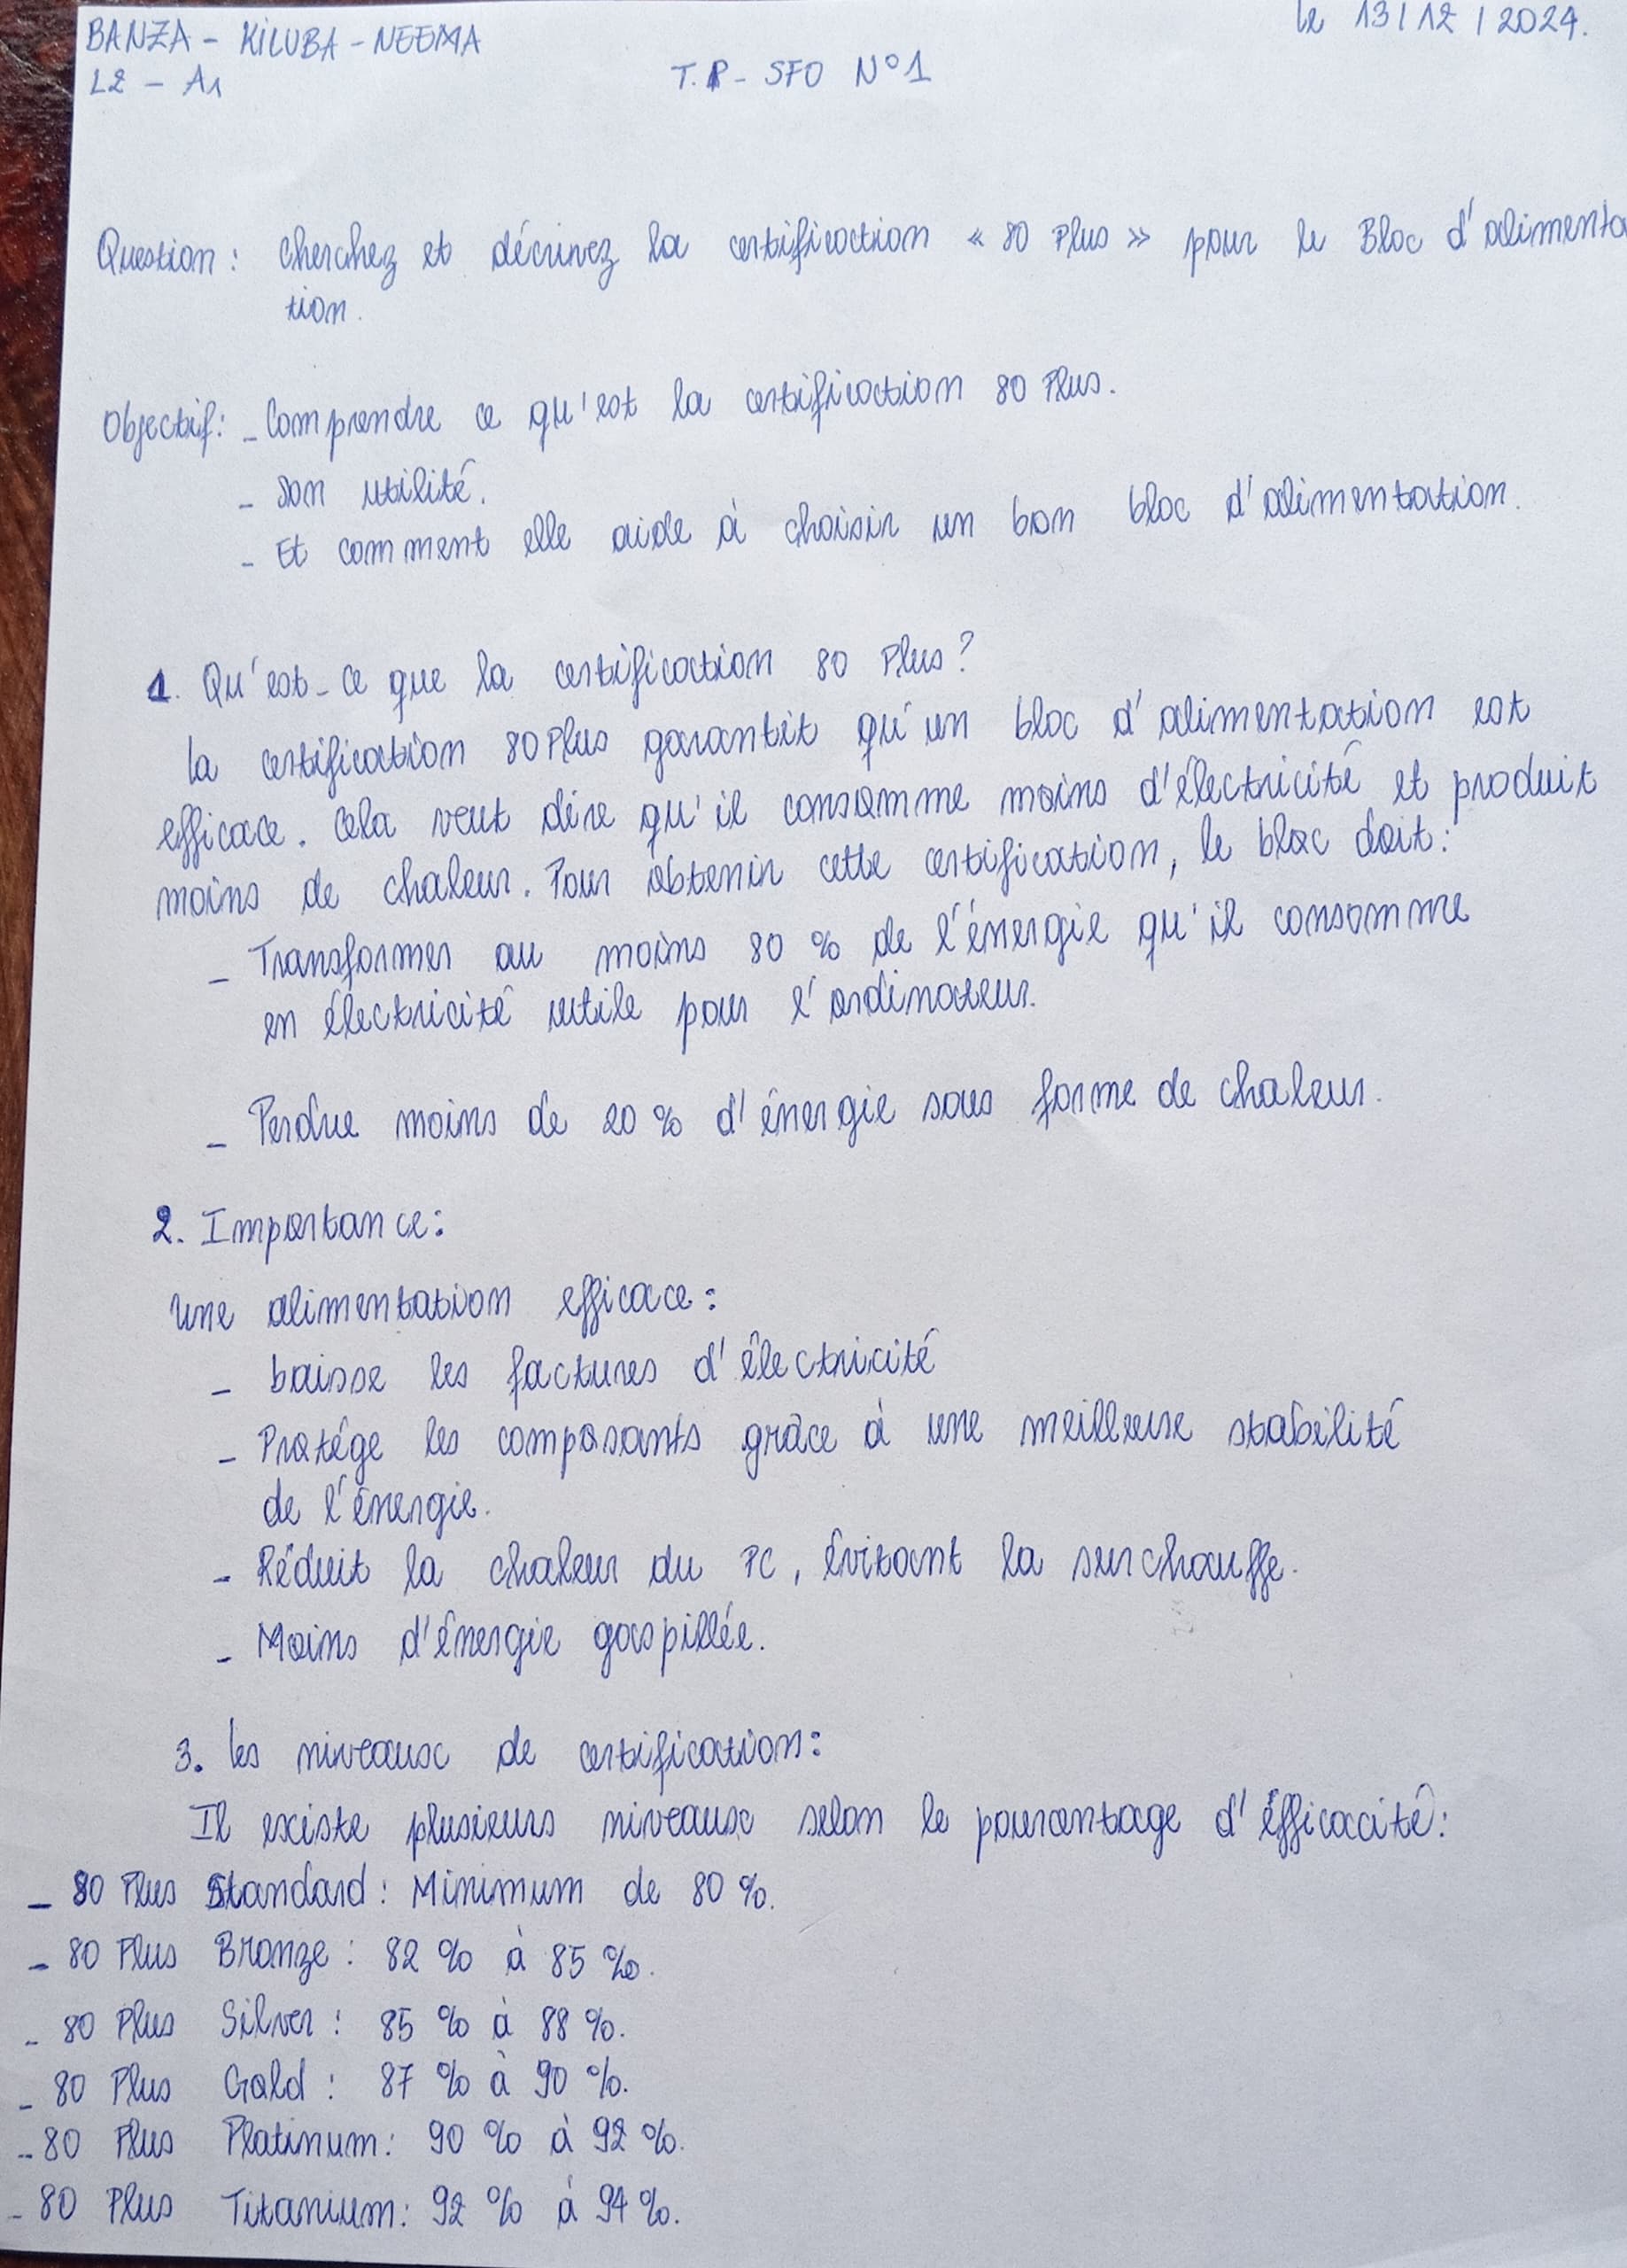 BANZA - KILUBA - NEEMA
le 13/12/2024.
L2 - A1
T.P - SFO N°1
Question: cherchez et décrivez la certification « 80 Plus » pour le Bloc d'alimenta
tion.
Objectif: - Comprendre ce qu'est la certification 80 Plus.
- Son utilité.
- Et comment elle aide à choisir un bon bloc d'alimentation.
1. Qu'est-ce que la certification 80 Plus?
la certification 80 Plus garantit qu'un bloc d'alimentation est
efficace. Cela veut dire qu'il consomme moins d'électricité et produit
moins de chaleur. Pour obtenir cette certification, le bloc doit:
- Transformer au moins 80 % de l'énergie qu'il consomme
en électricité utile pour l'ordinateur.
- Perdue moins de 20 % d'énergie sous forme de chaleur.
2. Importance:
Une alimentation efficace:
- baisse les factures d'électricité
- Protége les composants grâce à une meilleure stabilité
de l'énergie.
- Réduit la chaleur du PC, évitant la surchauffe.
- Moins d'énergie gaspillée.
3. les niveaux de certification:
Il existe plusieurs niveaux selon le pourcentage d'éfficacité:
- 80 Plus Standard: Minimum de 80 %.
- 80 Plus Bronze: 82 % à 85 %.
- 80 Plus Silver: 85 % à 88 %.
- 80 Plus Gold: 87 % à 90 %.
- 80 Plus Platinum: 90 % à 92 %.
- 80 Plus Titanium: 92 % à 94 %.